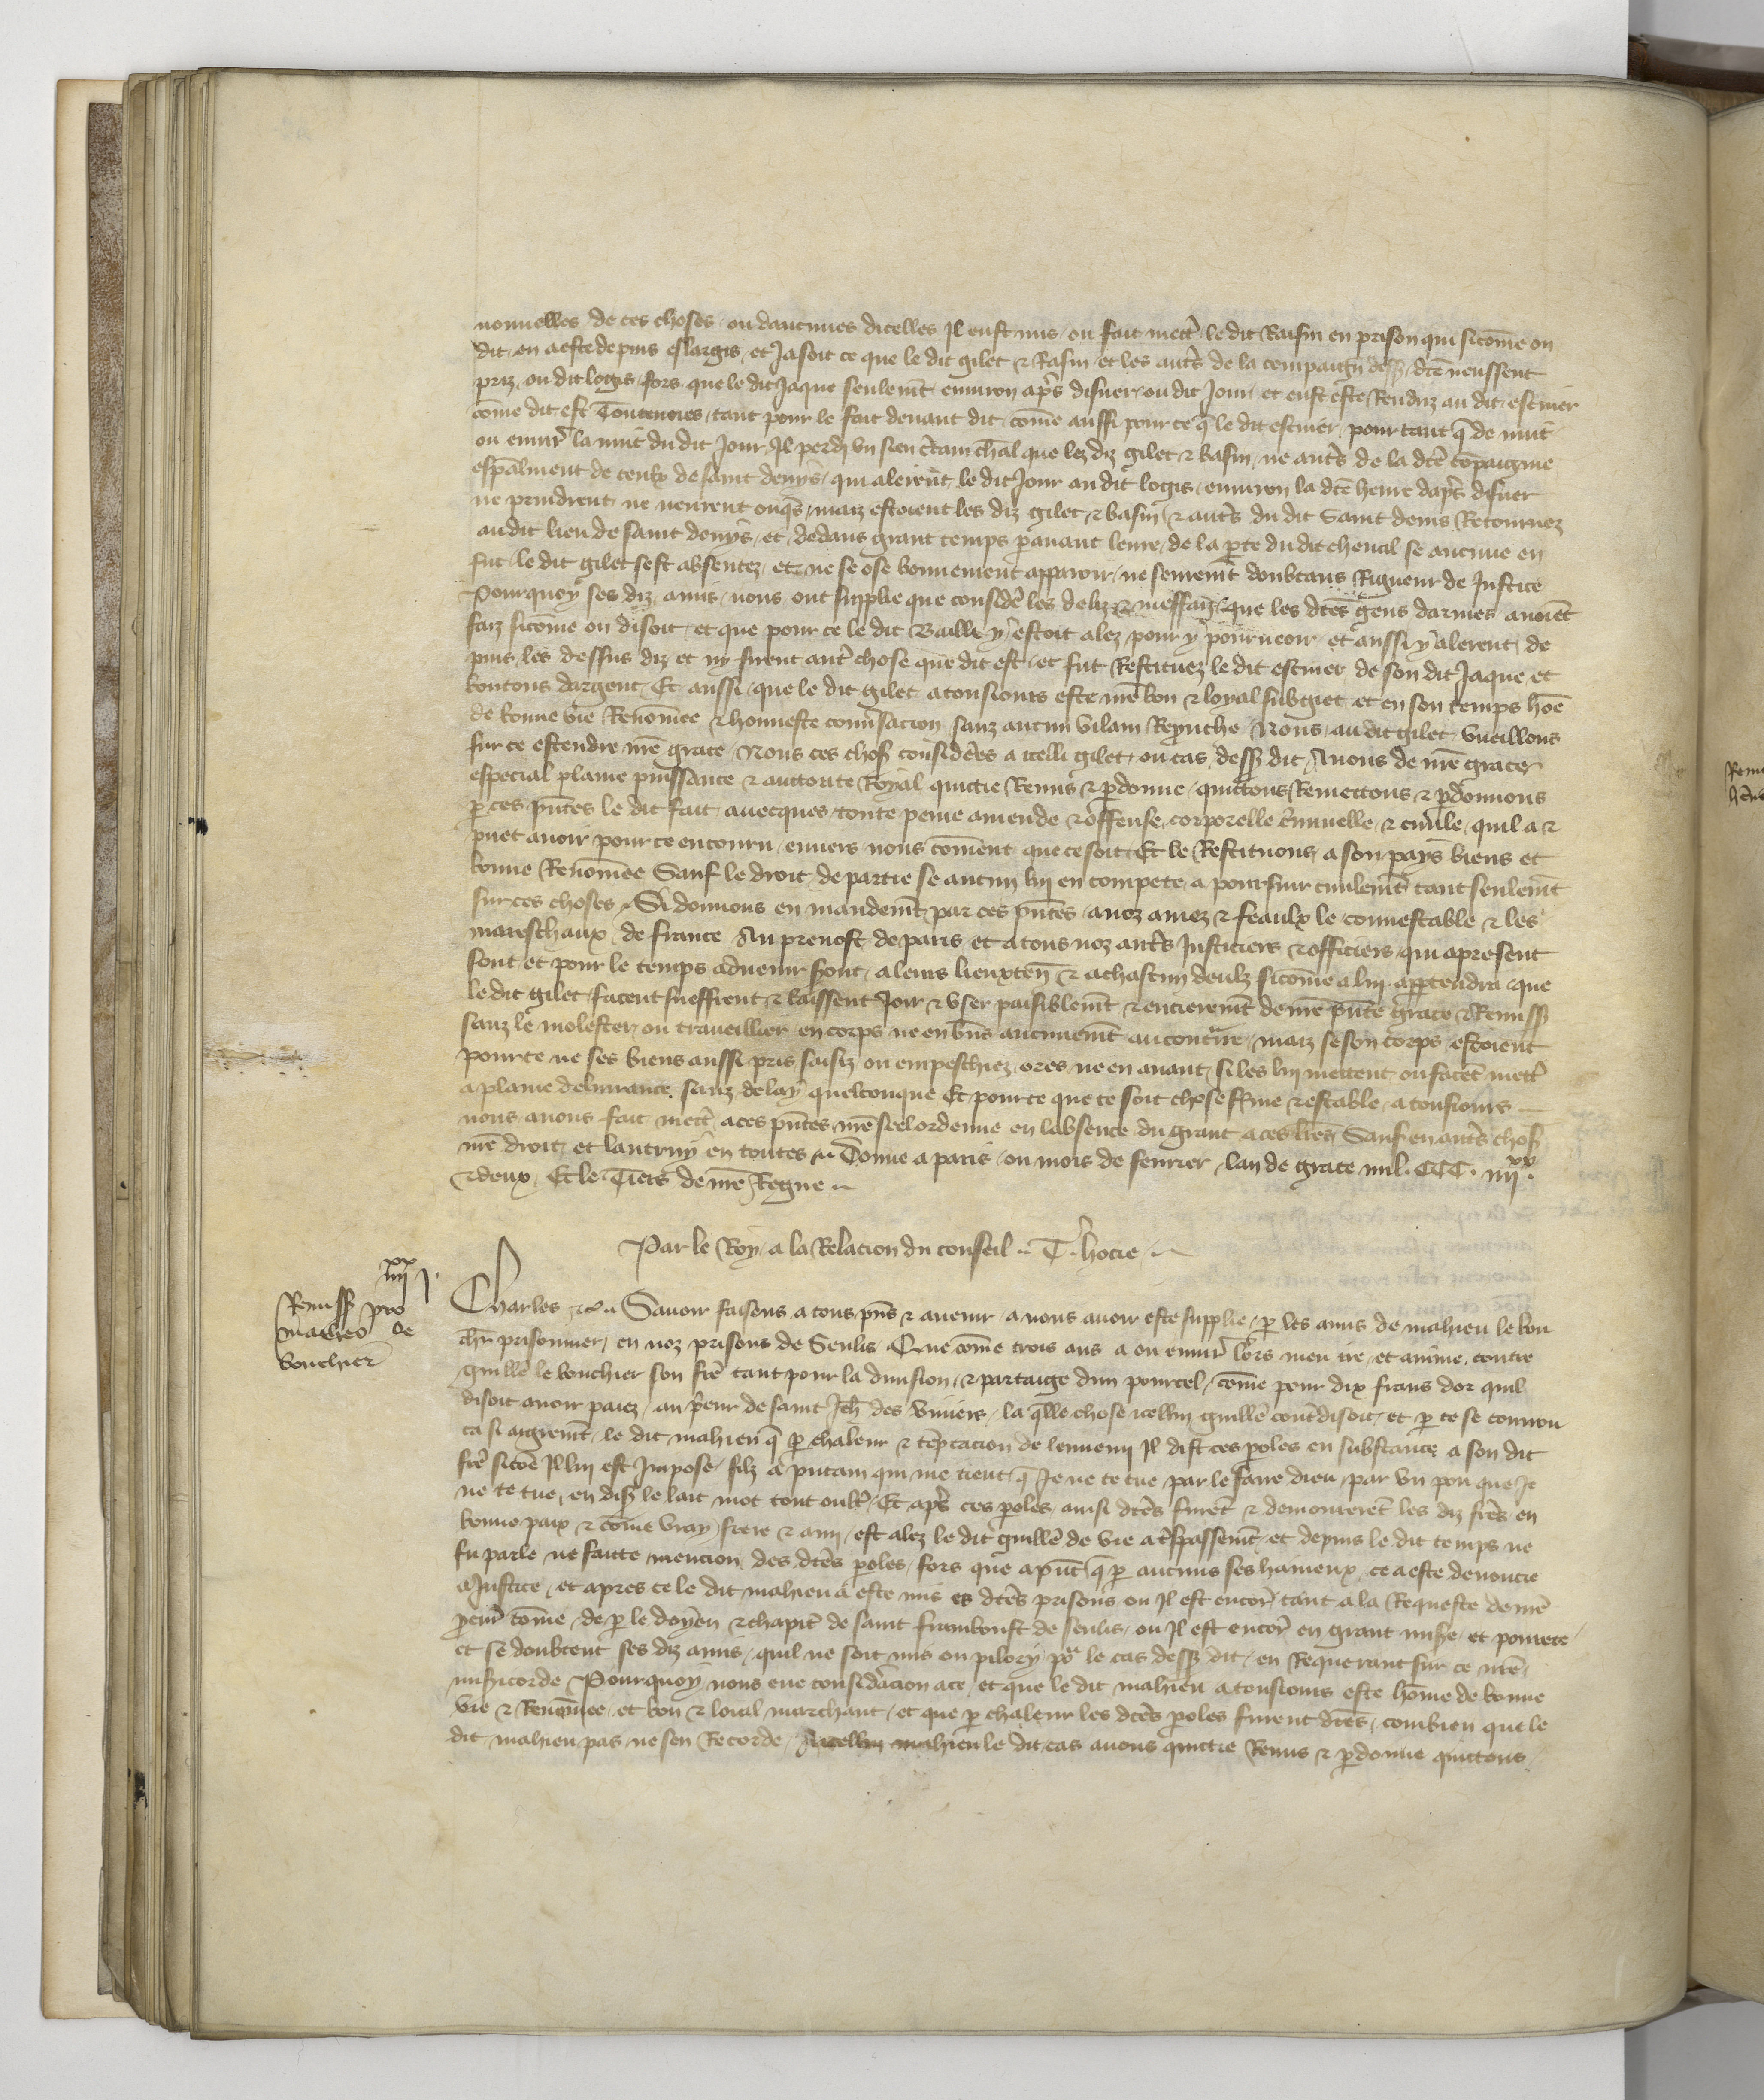 nouvelles de ces choses ou daucunes dicelles Il eust mis ou fait mettr le dit Raisin en prison qui sicome on
dit en a este depuis eslargis et Jasoit ce que le dit gilet & Rasin et les autrs de la compaign dess dce neussent
priz ou dit logis fors que le dit Jaque seulemt environ aprs disner ou dit Jour et eust este Renduz au dit escuier
come dit est Toutevoies tant pour le fait devant dit come aussi pour ce q le dit escuier pour tant q de nuit
ou envir la nuit du dit Jour Il perdi un sien ctain chal que lez diz gilet & basin ne autrs de la dce copaignie
espalment de ceulx de saint denys qui alerent le dit Jour au dit logis environ la dce heure daprs disner
ne prindrent ne neurent onqs maiz estoient les diz gilet & basin & autrs du dit Saint denis Retournez
au dit lieu de saint denys et dedans grant temps pavant leure de la pte du dit cheval se aucune en
fut le dit gilet sest absentez et ne se ose bonnement apparoir ne seuremt doubtans Rigueur de Justice
Pourquoy ses diz amis nous ont supplie que conside les deliz & meffaiz que les dces gens darmes avoiet
faiz sicome on disoit et que pour ce le dit Bailli y estoit alez pour y pourveoir et aussi y alerent de
puis les dessus diz et ny firent autr chose que dit est et fut Restituez le dit escuier de son dit Jaque et
boutons dargent Et aussi que le dit gilet a tousiours este nre bon & loyal subgiet et en son temps hoe
de bonne vie Renomee & honneste conusacion sanz aucun vilain Repruche Nous au dit gilet vueillons
sur ce estendre nre grace Nous ces chos considerees a icelli gilet ou cas dess dit Avons de nre grace
especial plaine puissance & auctorite Royal quictie Remis & pdonne quictons Remectons & pdonnons
p ces pntes le dit fait avecques toute peine amende & offense corporelle cminelle & civile quil a &
puet avoir pour ce encouru envers nous coment que ce soit Et le Restituons a son pays biens et
bonne Renomee Sauf le droit de partie se aucun lui en compete a poursuir civilemt tant seulemt
sur ces choses Si donnons en mandemt par ces pntes a noz amez & feaulx le connestable & les
mareschaux de france Au prevost de paris et a tous noz autrs Justiciers & officiers qui apresent
sont et pour le temps advenir sont a leurs lieuxten & a chascun deulz sicome a lui apptendra que
le dit gilet facent sueffrent & laissent Joir & user paisiblemt & entieremt de nre pnte grace & Remiss
sanz le molester ou traveillier en corps ne en bns aucunemt au contrire maiz se son corps estoient
pour ce ne ses biens aussi pris saisiz ou empeschiez ores ne en avant si les lui mettent ou facet mettr
a plaine delivrance sanz delay quelconque Et pource que ce soit chose ffme & estable a tousiours
nous avons fait mettr a ces pntes nre seel ordenne en labsence du grant a ces lres Sauf en autrs chos
nre droit et lautruy en toutes Donne a paris ou mois de fevrier lan de grace mil CCC iiii xx
& deux Et le Tiers de nre Regne
Par le Roy a la Relacion du conseil T hocie
iiii xx j
Remiss pro
Matheo de
bouchier
Charles &c Savoir faisons a tous pns & avenir a nous avoir este supplie p les amis de mahieu le bou
chr prisonner en noz prisons de Senlis Que come trois ans a ou envir lors meu ire et anime contre
guille le bouchier son fre tant pour la division & partaige dun pourcel come pour dix frans dor quil
disoit avoir paiez au peur de saint Jeh des viviers la qlle chose icellui guille contdisoit et p ce se courrou
ca si aigremt le dit mahieu q p chaleur & tetacion de lennemi Il dist ces poles en substance a son dit
fre sicoe Il lui est Impose filz a putain qui me tient q Je ne te tue par le sanc dieu par un pou que Je
ne te tue en dis le lait mot tout oultr Et aprs ces poles ainsi dces furet & demoureret les diz fres en
bonne paix & come vray frere & ami est alez le dit guille de vie a trspassemt et depuis le dit temps ne
fu parle ne faitte mencion des dces poles fors que a pnt q p aucuns ses haineux ce a este denoncie
a Justice et apres ce le dit mahieu a este mis es dces prisons ou Il est encor tant a la Requeste de nre
pcur come de p le doyen & chapitr de saint frambourt de senlis ou Il est encor en grant mise et povrete
et se doubtent ses diz amis quil ne soit mis ou pilory por le cas dess dit en Requerant sur ce nre
misicorde Pourquoy nous eue consideracion a ce et que le dit mahieu a tousiours este home de bonne
vie & Renomee et bon & loial marchant et que p chaleur les dces poles furent dces combien que le
dit mahieu pas ne sen Recorde A icellui mahieu le dit cas avons quictie Remis & pdonne quictons